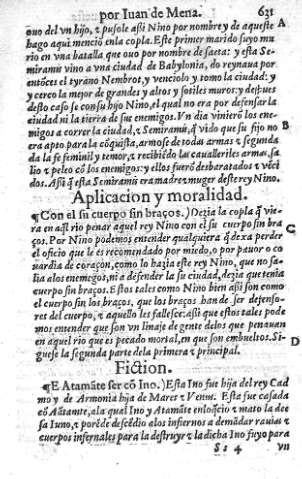 por Iuan de Mena. 631
ouo del vn hijo, z pusole assi Nino por nombre y de aqueste A
hago aqui mencio enla copla. Este primer marido suyo mu
rio en vna batalla que ouo por nombre de saeta: y esta Se
miramis vino a vna ciudad de Babylonia, do reynaua por
entõces el tyrano Nembrot, y venciolo y tomo la ciudad: y
y cerco la mejor de grandes y altos y sotiles muros: y despues
desto caso se con su hijo Nino, el qual no era por defensar la
ciudad ni la tierra de sus enemigos. Vn dia viniero los ene-
migos a correr la ciudad, z Semiramis, q̃ vido que su fijo no B
era apto para la cõquista, armose de todas armas z segunda
da la fe feminil y temor, z recibiẽdo las cauallerilles armas, sa
lio z peleo cõ los enemigos: y ellos fuerõ desbaratados z vẽci
dos. Assi q̃ esta Semiramis era madre z muger deste rey Nino.
Aplicacion y moralidad.
¶Con el su cuerpo sin braços.) Dezia la copla q̃ vie-
ra en aq̃l rio penar aquel rey Nino con el su cuerpo sin bra
ços. Por Nino podemos entender qualquiera q̃ dexa perder C
el oficio que le es recomendado por miedo, o por pauor o co
uardia de coraçon, como lo hazia este rey Nino, que no sa-
lia alos enemigos, ni a defender la su ciudad, dezia que tenia
cuerpo sin braços. Estos tales como Nino bien assi son como
el cuerpo sin los braços, que los braços han de ser defenso-
res del cuerpo, z aquello les fallesce: assi que estos tales pode
mos entender que son vn linaje de gente delos que penauan
en aquel rio que es pecado mortal, en que son embueltos. Si- D
guese la segunda parte dela primera z principal.
Fiction.
¶E Atamãte ser cõ Ino.) Esta Ino fue hija del rey Cad
mo y de Armonia hija de Mares z Venus. Esta fue casada
cõ Atamante, ala qual Ino y Atamante enloq̃cio z mato la dee
sa Iuno, z porẽde descẽdio alos infiernos a demãdar rauias z
cuerpos infernales para la destruyr z la dicha Ino fuyo para
Ss 4 vn